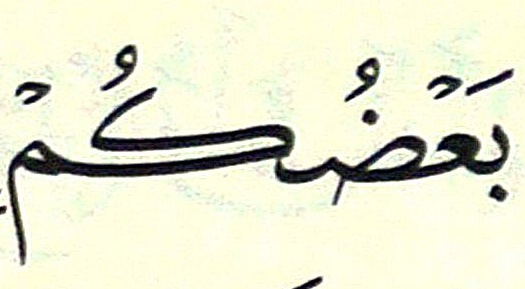 بَعْضُكُمْ